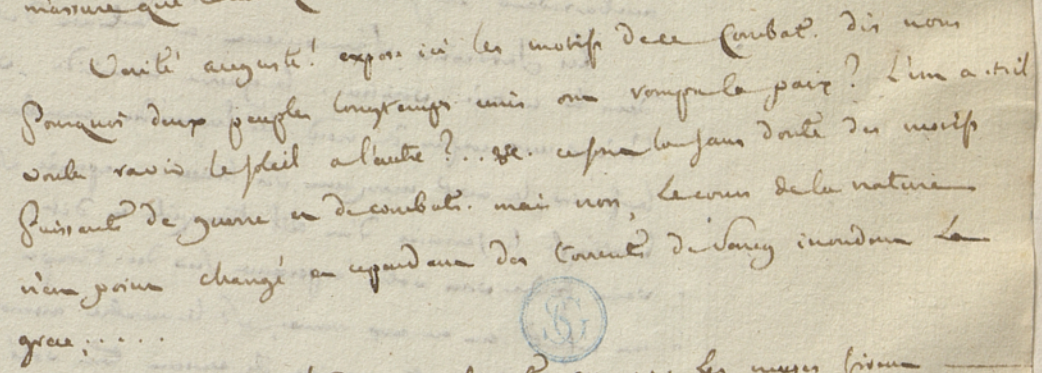 m'assure que
Verité auguste! expose ici les motifs de ce Combat. dis nous
Pourquoi deux peuples longtemps unis ont rompu la paix? L'un a-t-il
voulu ravir le soleil a l'autre?... ce sont la sans doute des motifs
Puissants de guerre et de combats. mais non, le cours de la nature
n'est point changé et cependant des torrents de Sang inondent la
grece;.....
SG
les muses